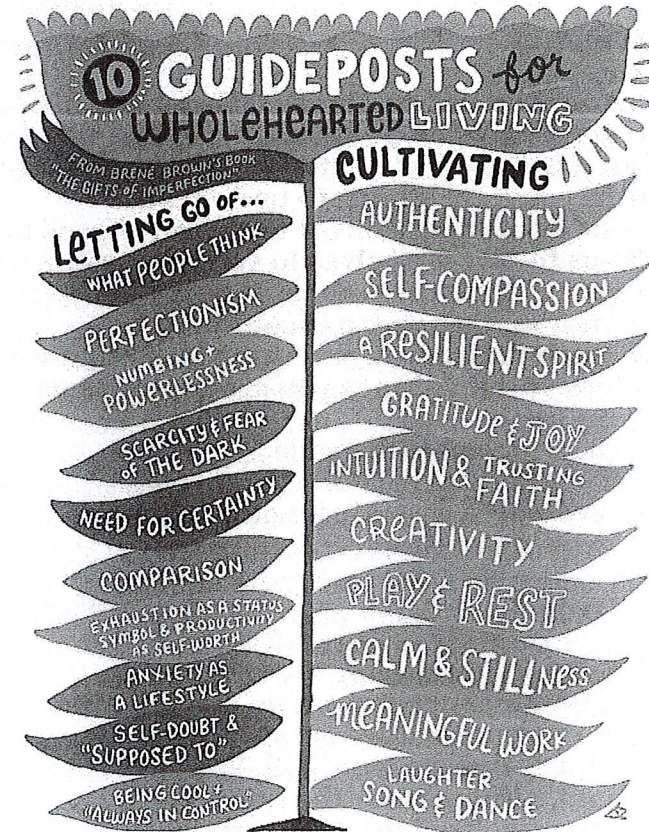 10 GUIDEPOSTS for
WHOLEHEARTED LIVING
FROM BRENÉ BROWN'S BOOK
"THE GIFTS OF IMPERFECTION"
LETTING GO OF...
WHAT PEOPLE THINK
PERFECTIONISM
NUMBING +
POWERLESSNESS
SCARCITY & FEAR
of THE DARK
NEED FOR CERTAINTY
COMPARISON
EXHAUSTION AS A STATUS
SYMBOL & PRODUCTIVITY
AS SELF-WORTH
ANXIETY AS
A LIFESTYLE
SELF-DOUBT &
"SUPPOSED TO"
BEING COOL +
"ALWAYS IN CONTROL"
CULTIVATING
AUTHENTICITY
SELF-COMPASSION
A RESILIENT SPIRIT
GRATITUDE & JOY
INTUITION & TRUSTING
FAITH
CREATIVITY
PLAY & REST
CALM & STILLNESS
MEANINGFUL WORK
LAUGHTER
SONG & DANCE